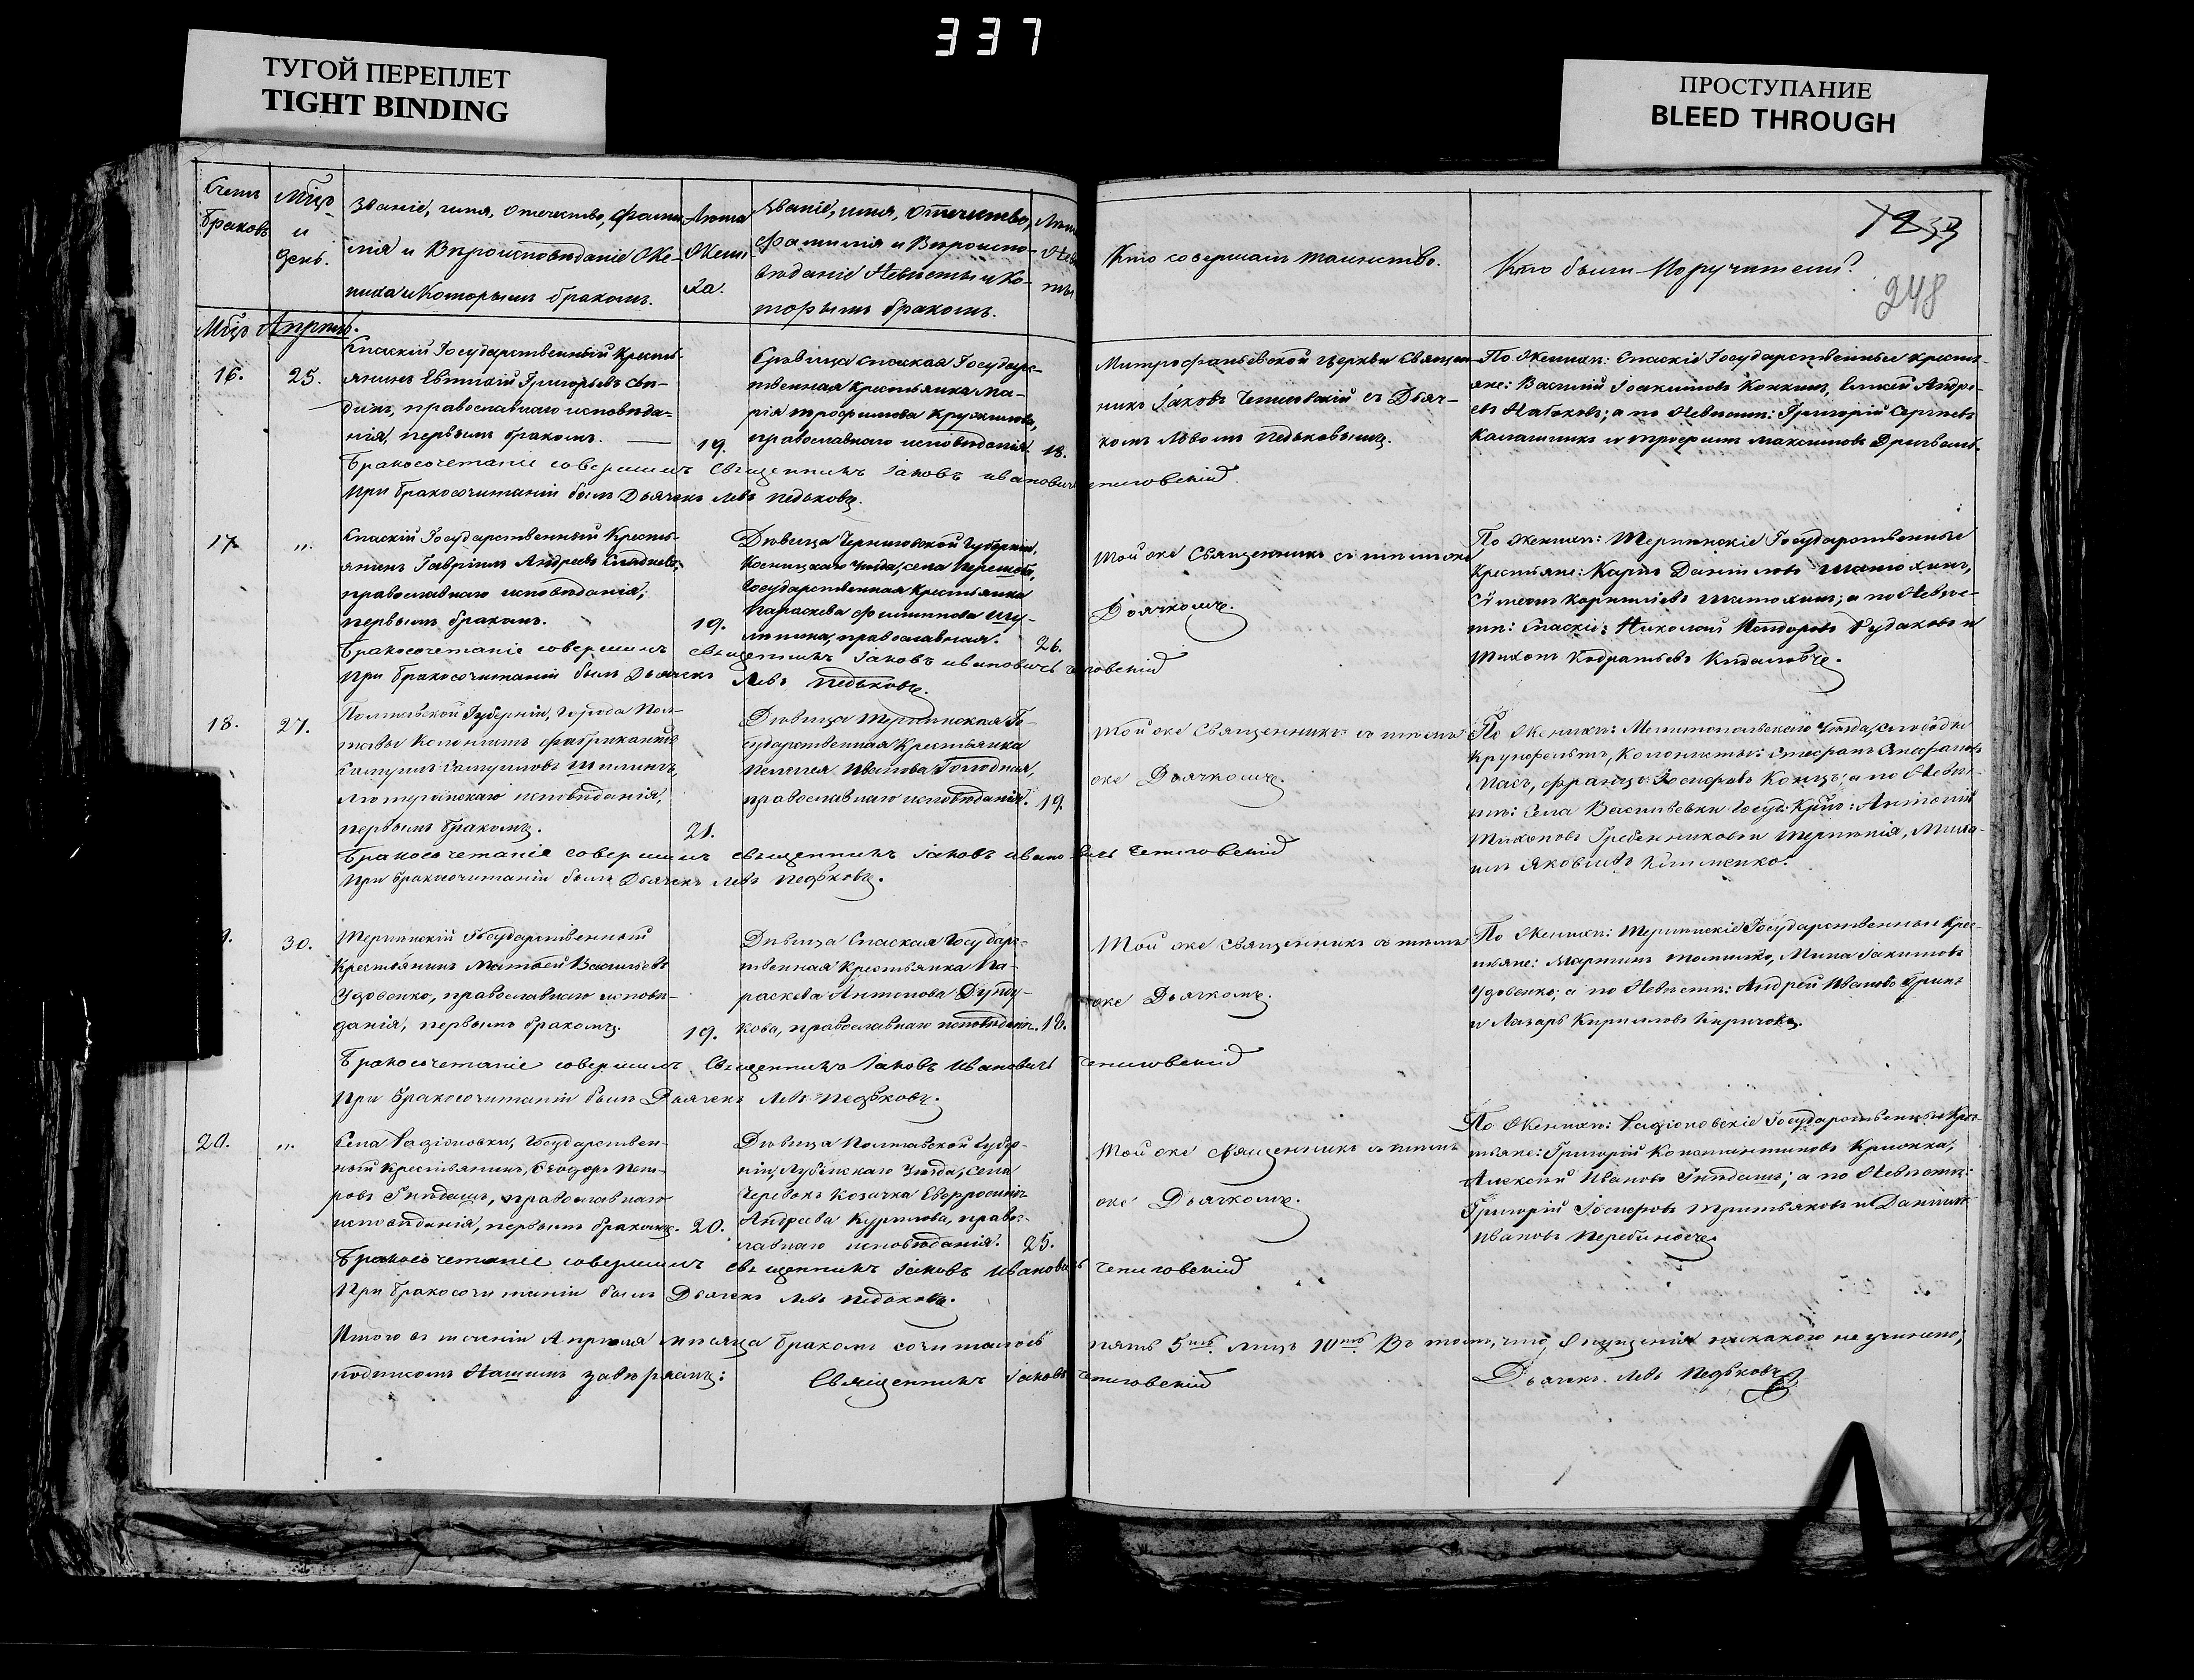 337
ТУГОЙ ПЕРЕПЛЕТ
TIGHT BINDING
ПРОСТУПАНИЕ
BLEED THROUGH
Счетъ
браковъ
Мѣсц
и
день.
Званіе, имя, отечество, фами
лія и Вѣроисповѣданіе Же-
ниха и Которымъ бракомъ.
Лѣта
Жени
ха.
Званіе, имя, отечество,
фамилія и Вѣроиспо-
вѣданіе Невѣсты и Ко-
торымъ бракомъ.
Кто совершалъ таинство.
Кто были Поручители?
248
Мѣсц Апрѣль.
16.
25.
Спаскій Государственный Кресть-
янинъ Евтихій Григорьевъ
православнаго исповѣда-
нія, первымъ бракомъ.
19.
Дѣвица Спаская Государс-
твенная Крестьянка Ма-
рія Трофимова
православнаго исповѣданія.
18.
Митрофаньевской церкви Священ
никъ Іаковъ Чепиговскій съ Дьяч-
комъ Львомъ Педьковымъ.
По Женихѣ: Спаскіе Государственные кресть
яне: Василій Іоакимовъ
а по Невѣстѣ: Григорій Сергѣевъ
и Трофимъ Максимовъ
Бракосочетаніе совершилъ Священникъ Іаковъ Ивановичъ Чепиговскій
При бракосочитаніи былъ Дьячекъ Левъ Педьковъ.
17.
"
Спаскій Государственный Кресть-
янинъ Гавріилъ Андреевъ
православнаго исповѣданія,
первымъ бракомъ.
19.
Дѣвица Черниговской Губерніи,
уѣзда, села
Государственная Крестьянка
Параскева Филипова
православная.
26.
Той же Священникъ съ тѣмъ же
Дьячкомъ.
По Женихѣ: Терпѣнскіе Государственные
Крестьяне: Карпъ Даніиловъ
а по Невѣс-
тѣ: Спаскіе: Николай Рудаковъ и
Тихонъ Кодратьевъ
Бракосочетаніе совершилъ священникъ Іаковъ Ивановичъ Чепиговскій
При бракосочитаніи былъ Дьячекъ Левъ Педьковъ.
18.
27.
Полтавской Губерніи, города Пол-
тавы Колонистъ фабрикантъ
Самуилъ Самуиловъ Шилингъ,
Лютеранскаго исповѣданія,
первымъ бракомъ.
21.
Дѣвица Терпѣнская Го-
сударственная Крестьянка
Пелагея Иванова Голодная,
православнаго исповѣданія.
19.
Той же Священникъ съ тѣмъ
же Дьячкомъ.
По Женихѣ: Мелитопольскаго Уѣзда, слободы
Колонисты: Стефанъ
Францъ Іосифовъ а по Невѣс-
тѣ: Села Васильевки Госуд: Крес: Антоній
Тихоновъ Гребенниковъ и Терпѣнія, Миха-
илъ Яковлевъ Клименко.
Бракосочетаніе совершилъ священникъ Іаковъ Ивановичъ Чепиговскій
При бракосочитаніи былъ Дьячекъ Левъ Педьковъ.
30.
Терпѣнскій Государственный
Крестьянинъ Матвей Васильевъ
Удовенко, православнаго исповѣ-
данія, первымъ бракомъ.
19.
Дѣвица Спаская Государс-
твенная Крестьянка Па-
раскева Антонова
кова, православнаго исповѣданія.
18.
Той же священникъ съ тѣмъ
же Дьячкомъ.
По Женихѣ: Терпѣнскіе Государственные Крес-
тьяне: Мартинъ Мина Іакимовъ
Удовенко; а по Невѣстѣ: Андрей Ивановъ
и Лазарь Кириловъ
Бракосочетаніе совершилъ Священникъ Іаковъ Ивановичъ Чепиговскій
При Бракосочитаніи былъ Дьячекъ Левъ Педьковъ.
20.
"
Села Радіоновки, Государствен-
ный Крестьянинъ, Феодоръ Пет-
ровъ Гнѣдашъ, православнаго
исповѣданія, первымъ бракомъ.
20.
Дѣвица Полтавской Губер-
ніи, Лубенскаго Уѣзда, села
Козачка Евфросинія
Андреева Курилова, право-
славнаго исповѣданія.
25.
Той же священникъ съ тѣмъ
же Дьячкомъ.
По Женихѣ: Радіоновскіе Государственные Крес
тьяне: Григорій Константиновъ
Алексѣй Ивановъ Гнѣдашъ; а по Невѣстѣ:
Григорій Іосифовъ Третьяковъ и Даніилъ
Ивановъ
Бракосочетаніе совершилъ священникъ Іаковъ Ивановичъ Чепиговскій
При бракосочитаніи былъ Дьячекъ Левъ Педьковъ.
Итого въ теченіи Апрѣля мѣсяца бракомъ сочиталось пять 5ть. лицъ 10ть. Въ томъ, что опущенія никакого не учинено,
подписомъ Нашимъ завѣряемъ: Священникъ Іаковъ Чепиговскій
Дьячекъ Левъ Педьковъ